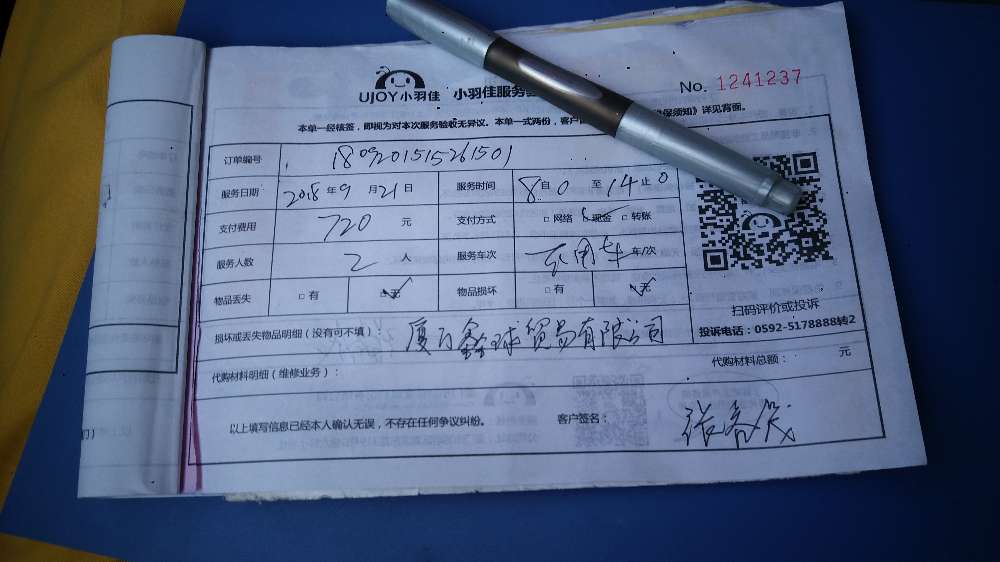 UJOY小羽佳 小羽佳服务 No. 1241237
本单一经核签，即视为对本次服务验收无异议。本单一式两份，客户 保须知》详见背面。
订单编号 1809201515261501
服务日期 2018年9月21日 服务时间 8自0至14止0
支付费用 720元 支付方式 □网络 □现金 □转账
服务人数 2人 服务车次 车/次
物品丢失 □有 □无 物品损坏 □有 □无
扫码评价或投诉
投诉电话：0592-5178888转2
损坏或丢失物品明细（没有可不填）： 厦门鑫球贸易有限公司
代购材料明细（维修业务）： 代购材料总额： 元
以上填写信息已经本人确认无误，不存在任何争议纠纷。 客户签名：